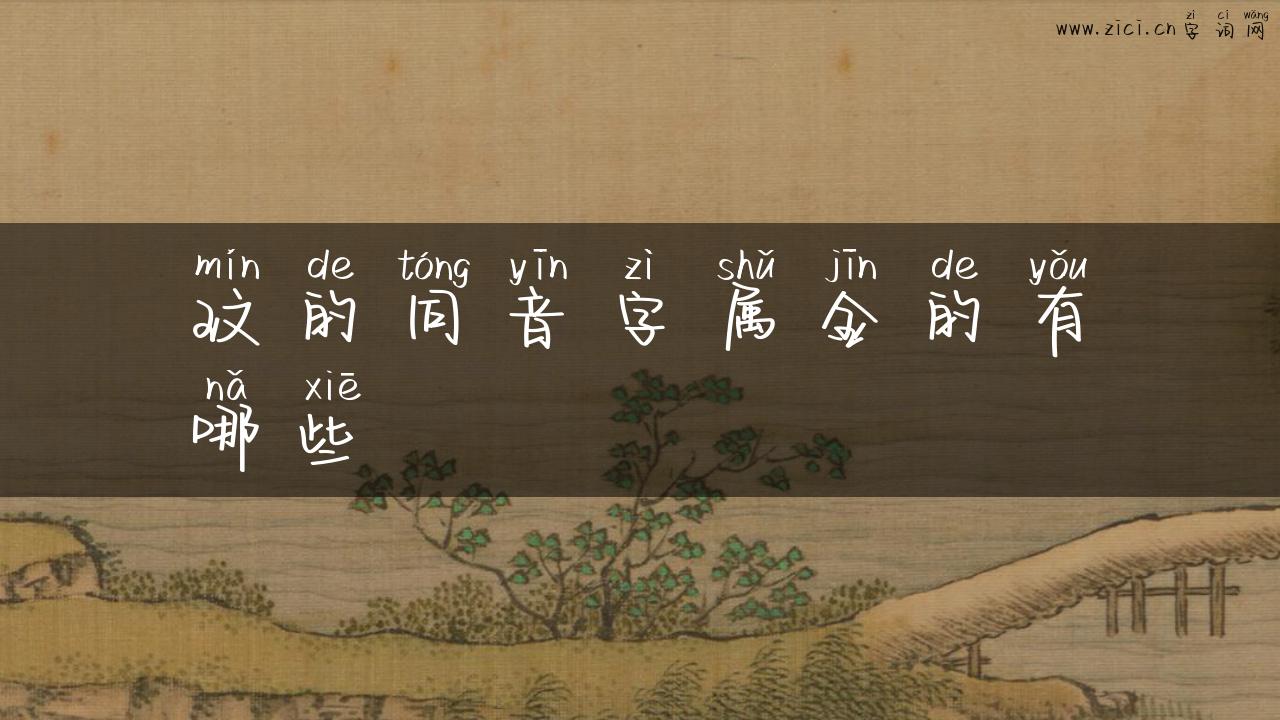 zì cí wǎng
www.zici.cn 字 词 网
mín de tóng yīn zì shǔ jīn de yǒu
玟 的 同 音 字 属 金 的 有
nǎ xiē
哪 些